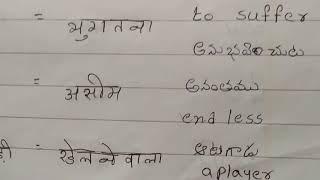 = भुगतना to suffer
అనుభవించుట
= असीम అనంతము
endless
ड़ी = खेलनेवाला ఆటగాడు
a player